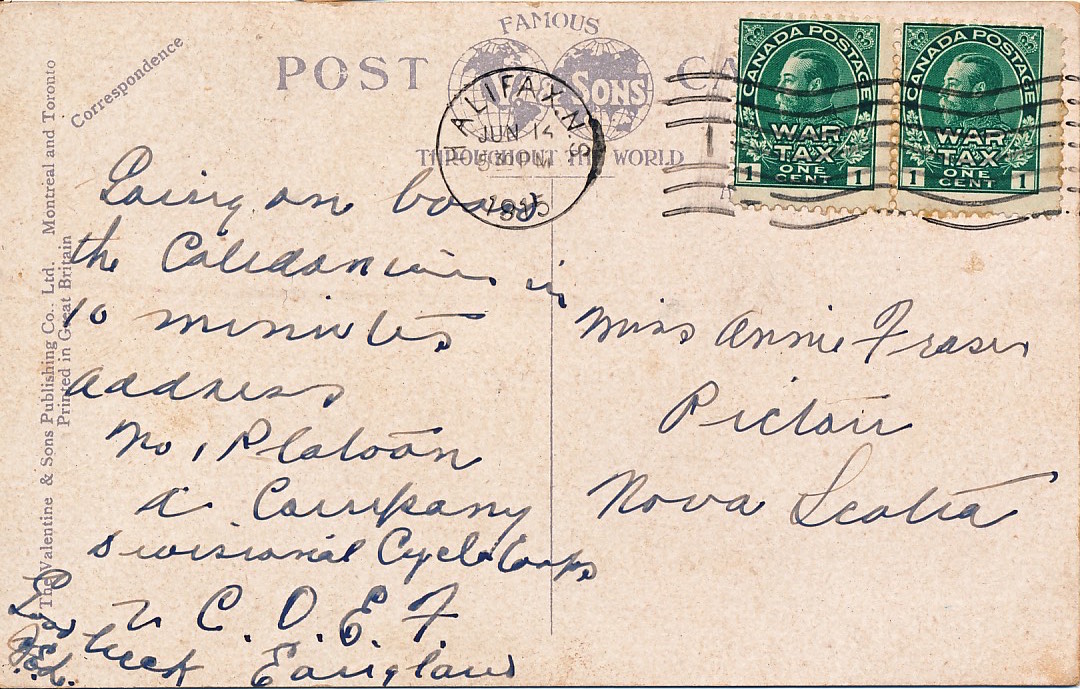 FAMOUS
POST CA
SONS
THROUGHOUT THE WORLD
HALIFAX. N.S.
JUN 14
5 30 PM
1915
CANADA POSTAGE
WAR
TAX
ONE
CENT
1 1
CANADA POSTAGE
WAR
TAX
ONE
CENT
1 1
Correspondence
The Valentine & Sons Publishing Co., Ltd. Montreal and Toronto
Printed in Great Britain
Going on board
the Caledonian in
10 minutes
address
No, 1 Platoon
Company
Divisional Cycle Corps
C. O. E. F.
England
Miss Annie Fraser
Pictou
Nova Scotia